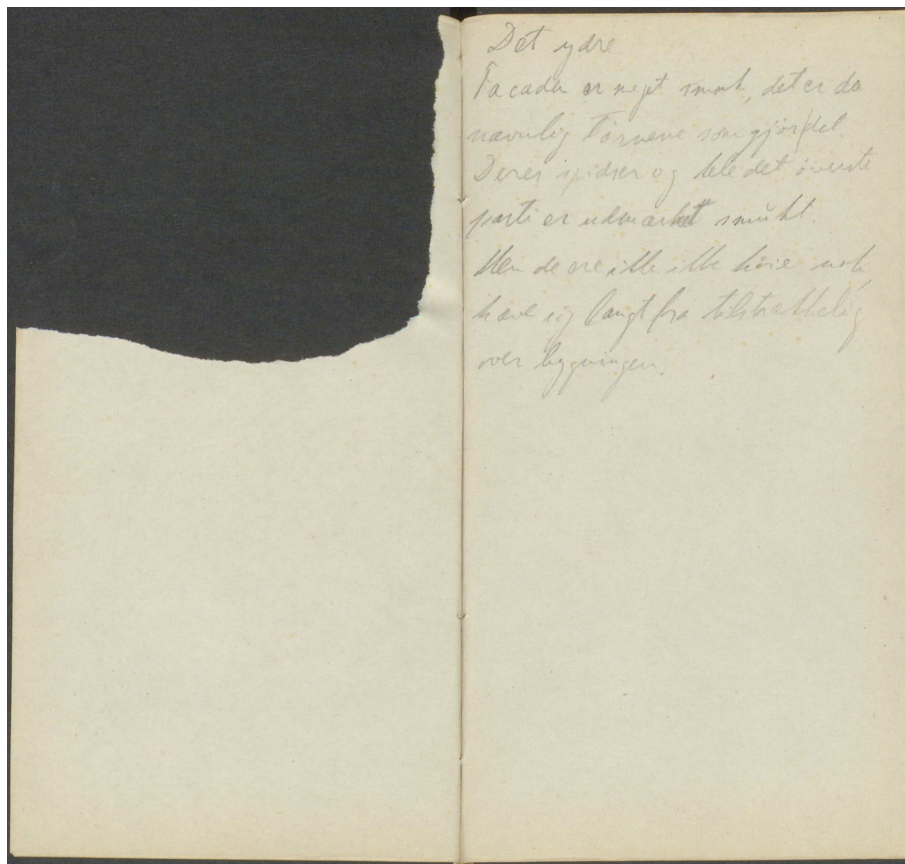 Det ydre
Facaden er meget smuk, det er da
navnlig Tårnene som gjør det.
Deres spidser og hele det överste
parti er udmærket smukt.
Men de ere ikke ikke höie nok,
hæve sig langt fra tilstrækkelig
over bygningen.